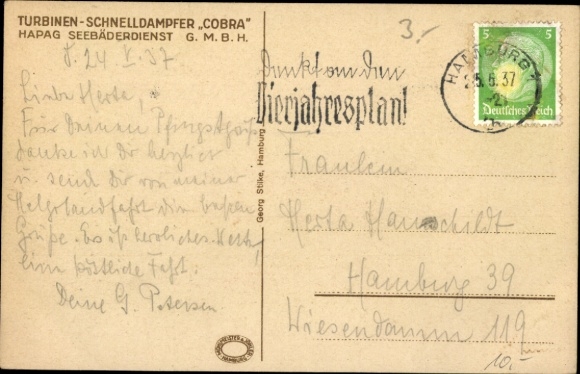 TURBINEN-SCHNELLDAMPFER „COBRA"
HAPAG SEEBÄDERDIENST G. M. B. H.
24. V. 37
Liebe Herta,
Für Deinen Pfingstgruß
danke ich Dir herzlich
u. send Dir von meiner
Helgolandfahrt die besten
Grüße. Es ist herrliches
eine köstliche Fahrt.
Deine G. Petersen
Georg Stilke, Hamburg
Denkt an den
Vierjahresplan!
HAMBURG
25.5.37
5 5
Deutsches Reich
3.-
Fräulein
Herta Hauschildt
Hamburg 39
Wiesendamm 119
10,-